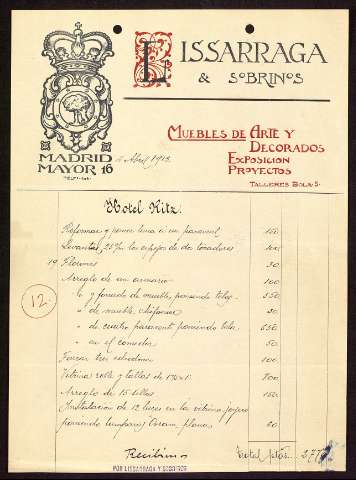 LISSARRAGA
& SOBRINOS
MUEBLES DE ARTE Y
DECORADOS
EXPOSICION
PROYECTOS
TALLERES BOLA 5
MADRID
MAYOR 16
Abril 1913
Hotel Ritz
Reformar y poner tela a un paravent 150
Levantar los espejos de dos tocadores 100
19 Florones 30
Arreglo de un armario 100
y forrado de mueble, poniendo tela 550
de mueble, chifonier 30
de cuatro paravent poniendo tela 550
en el comedor 50
Forrar tres 100
Vitrina roble y tallas de 800
Arreglo de 15 sillas 150
Instalacion de 12 luces en la vitrina
poniendo lamparas Osram, planas 60
12.
Recibimos
Total Ptas
POR LISSARRAGA Y SOBRINOS